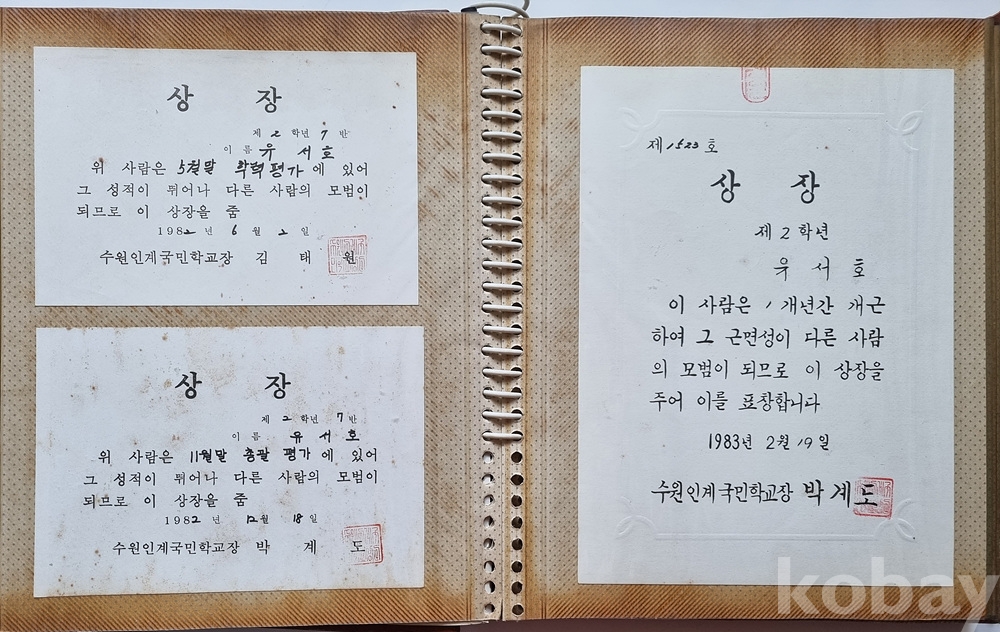 상 장
제 2 학년 7 반
이 름 유 서 호
위 사람은 5월말 학력평가 에 있어
그 성적이 뛰어나 다른 사람의 모범이
되므로 이 상장을 줌
1982 년 6 월 2 일
수원인계국민학교장 김 태 원
상 장
제 2 학년 7 반
이 름 유 서 호
위 사람은 11월말 총괄 평가 에 있어
그 성적이 뛰어나 다른 사람의 모범이
되므로 이 상장을 줌
1982 년 12 월 18 일
수원인계국민학교장 박 계 도
제 1523 호
상 장
제 2 학년
유 서 호
이 사람은 1 개년간 개근
하여 그 근면성이 다른 사람
의 모범이 되므로 이 상장을
주어 이를 표창합니다
1983년 2월 19일
수원인계국민학교장 박계도
kobay